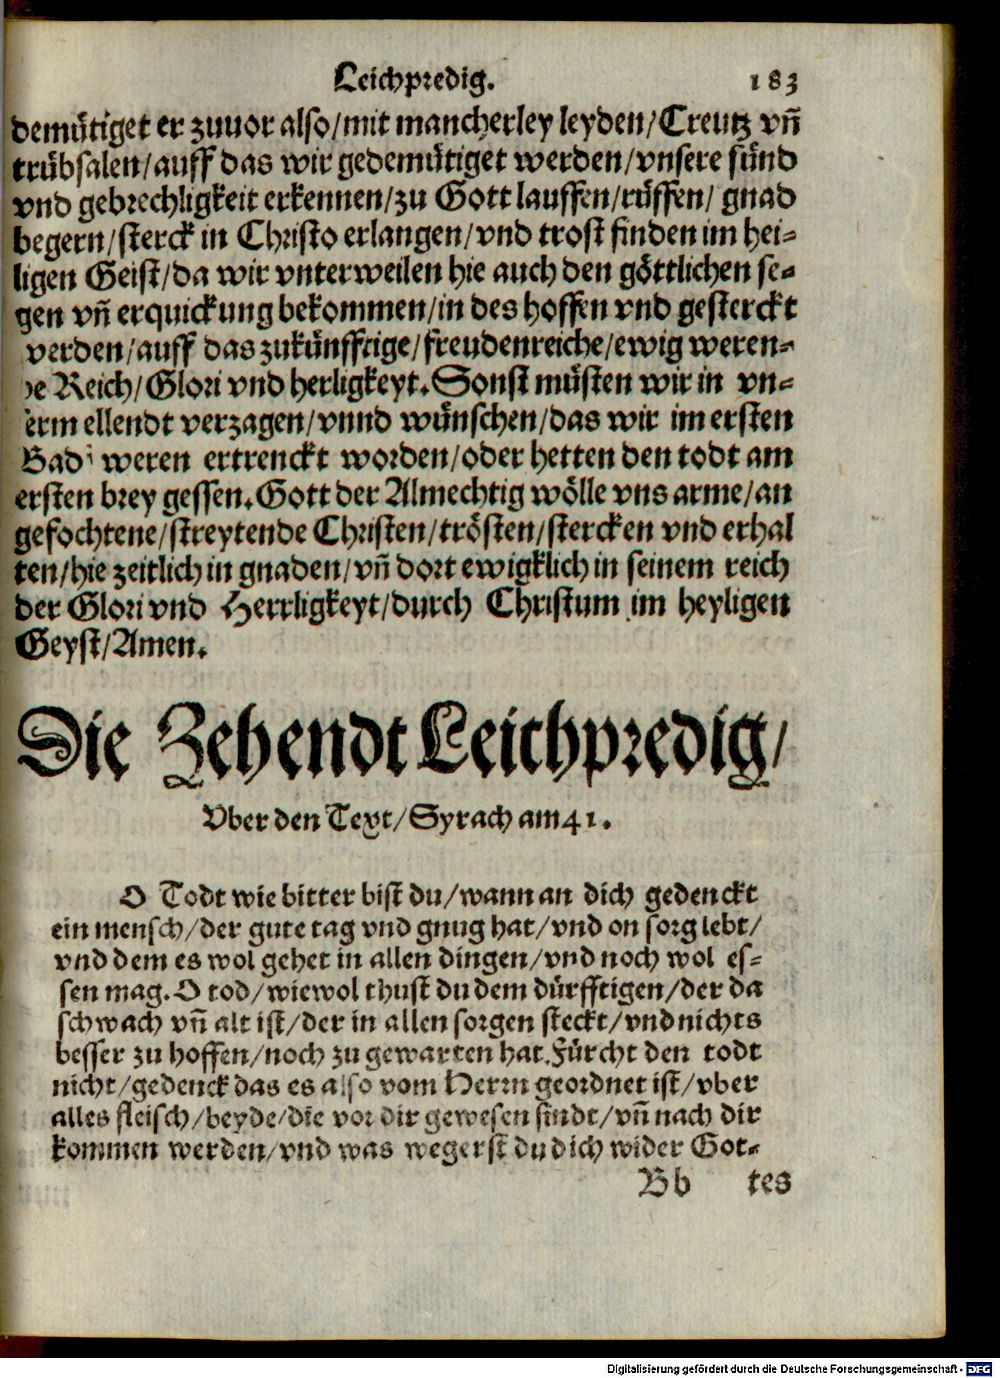 Leichpredig. 183
demütiget er zuuor also/mit mancherley leyden/Creutz vñ
trübsalen/auff das wir gedemütiget werden/vnsere sünd
vnd gebrechligkeit erkennen/zu Gott lauffen/rüffen/ gnad
begern/sterck in Christo erlangen/vnd trost finden im hei=
ligen Geist/da wir vnterweilen hie auch den göttlichen se=
gen vñ erquickung bekommen/in des hoffen vnd gesterckt
verden/auff das zukünfftige/freudenreiche/ewig weren=
de Reich/Glori vnd herligkeyt. Sonst müsten wir in vn=
serm ellendt verzagen/vnnd wünschen/das wir im ersten
Bad weren ertrenckt worden/oder hetten den todt am
ersten brey gessen. Gott der Almechtig wölle vns arme/an
gefochtene/streytende Christen/trösten/stercken vnd erhal
ten/hie zeitlich in gnaden/vñ dort ewigklich in seinem reich
der Glori vnd Herrligkeyt/durch Christum im heyligen
Geyst/Amen.
Die Zehendt Leichpredig/
Vber den Text/Syrach am 41.
O Todt wie bitter bist du/wann an dich gedenckt
ein mensch/der gute tag vnd gnug hat/vnd on sorg lebt/
vnd dem es wol gehet in allen dingen/vnd noch wol es=
sen mag. O tod/wiewol thust du dem dürfftigen/der da
schwach vñ alt ist/der in allen sorgen steckt/vnd nichts
besser zu hoffen/noch zu gewarten hat. Fürcht den todt
nicht/gedenck das es also vom Herrn geordnet ist/vber
alles fleisch/beyde/die vor dir gewesen sindt/vñ nach dir
kommen werden/vnd was wegerst du dich wider Got=
Bb tes
Digitalisierung gefördert durch die Deutsche Forschungsgemeinschaft - DFG